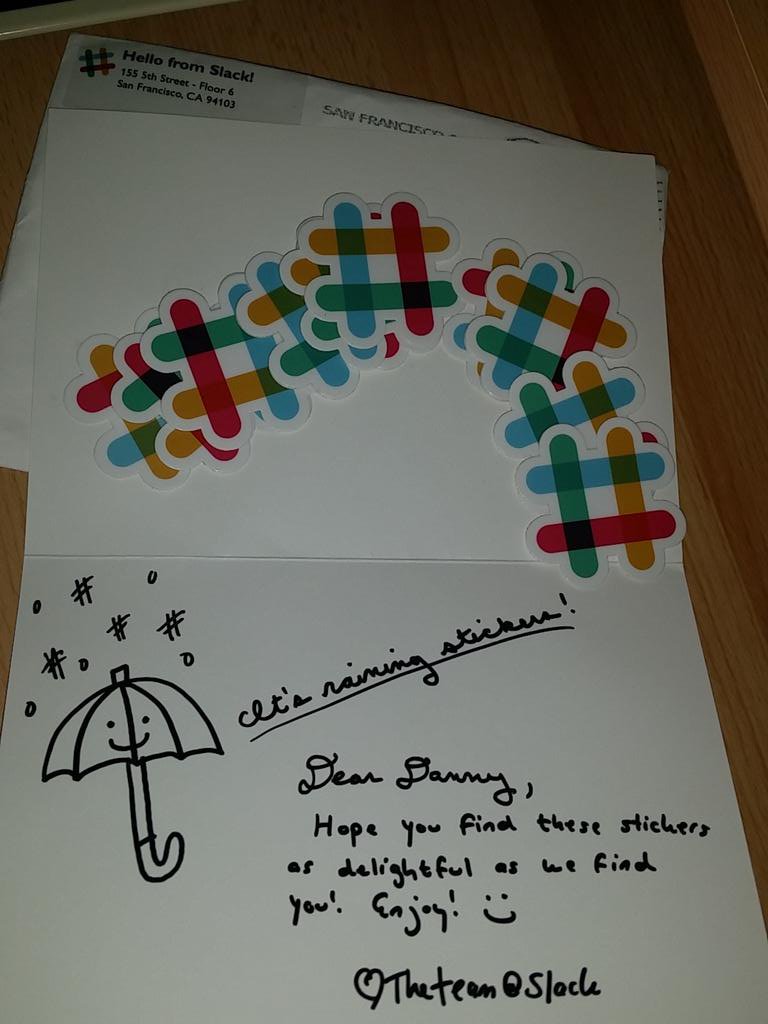 Hello from Slack!
155 5th Street - Floor 6
San Francisco, CA 94103
SAN FRANCISCO
# # # #
It's raining stickers!
Dear Danny,
Hope you find these stickers
as delightful as we find
you! Enjoy! :)
♡The team @ Slack